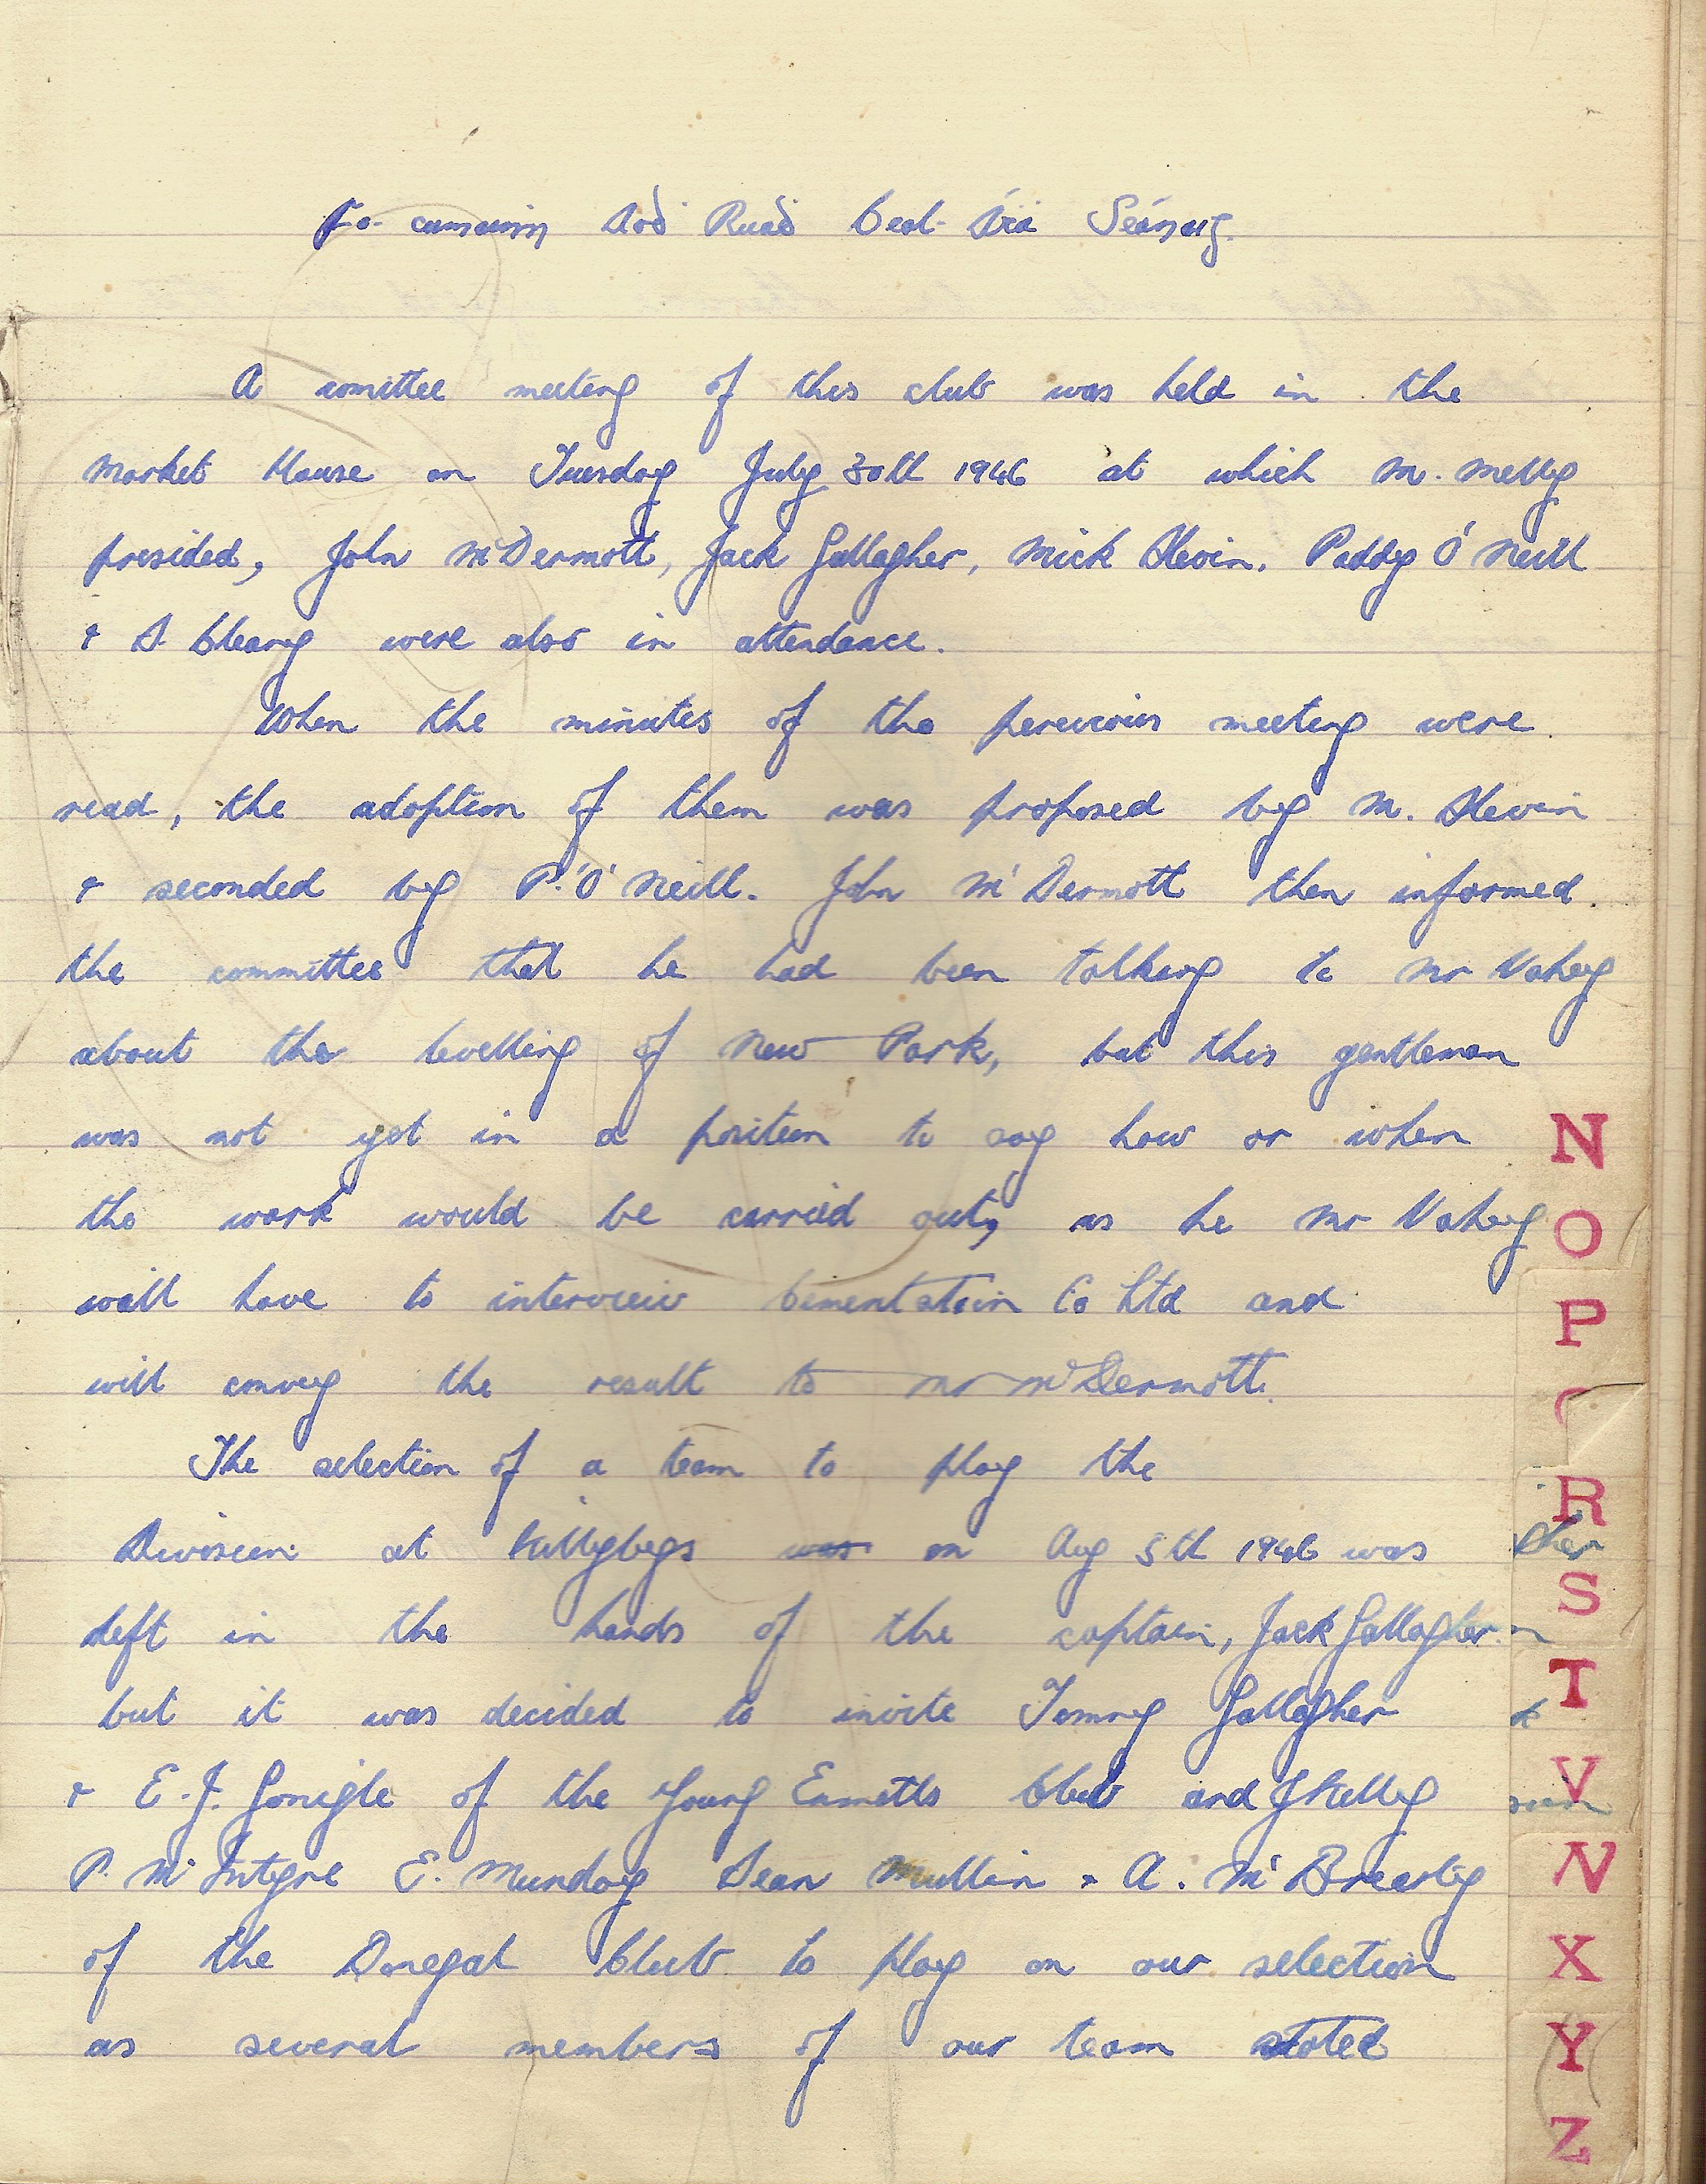 Fo- cumainn Aod Ruad beal- Áta Seanaig.
A comittee meeting of this club was held in the
Market House on Tuesday July 30th 1946 at which M. Melly
presided, John McDermott, Jack Gallagher, Mick Slevin, Paddy O'Neill
& S. Cleary were also in attendance.
When the minutes of the perevious meeting were
read, the adoption of them was proposed by M. Slevin
& seconded by P. O'Neill. John McDermott then informed
the committee that he had been talking to Mr Vahey
about the levelling of New Park, but this gentleman
was not yet in a position to say how or when
the work would be carried out, as he Mr Vahey
will have to interview Cementation Co Ltd and
will convey the result to Mr McDermott.
The selection of a team to play the
Division at Killybegs was on Aug 5th 1946 was
left in the hands of the captain, Jack Gallagher
but it was decided to invite Tommy Gallagher
& E.J. Gonigle of the Young Emmetts Club and J Kelly
P. McIntyre E. Munday Sean Mullin & A. McBrearty
of the Donegal Club to play on our selection
as several members of our team stated
N
O
P
R
S
T
V
X
Y
Z